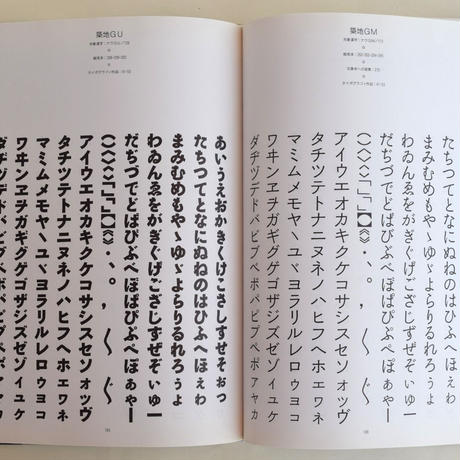 築地GU
築地GM
たちつてとなにぬねのはひふへほぇゎ
まみむめもやゝゆゞよらりるれろぅょ
わゐんゑをがぎぐげござじずぜぞぃゅ
だぢづでどばびぶべぼぱぴぷぺぽぁゃー
アイウエオカキクケコサシスセソォッヴ
タチツテトナニヌネノハヒフヘホェヮネ
マミムメモヤヽユヾヨラリルレロゥョコ
ワヰンヱヲガギグゲゴザジズゼゾィュケ
ダヂヅデドバビブベボパピプペポァャカ
あいうえおかきくけこさしすせそぉっ
たちつてとなにぬねのはひふへほぇゎ
まみむめもやゝゆゞよらりるれろぅょ
わゐんゑをがぎぐげござじずぜぞぃゅ
だぢづでどばびぶべぼぱぴぷぺぽぁゃー
アイウエオカキクケコサシスセソォッヴ
タチツテトナニヌネノハヒフヘホェヮネ
マミムメモヤヽユヾヨラリルレロゥョコ
ワヰンヱヲガギグゲゴザジズゼゾィュケ
ダヂヅデドバビブベボパピプペポァャカ